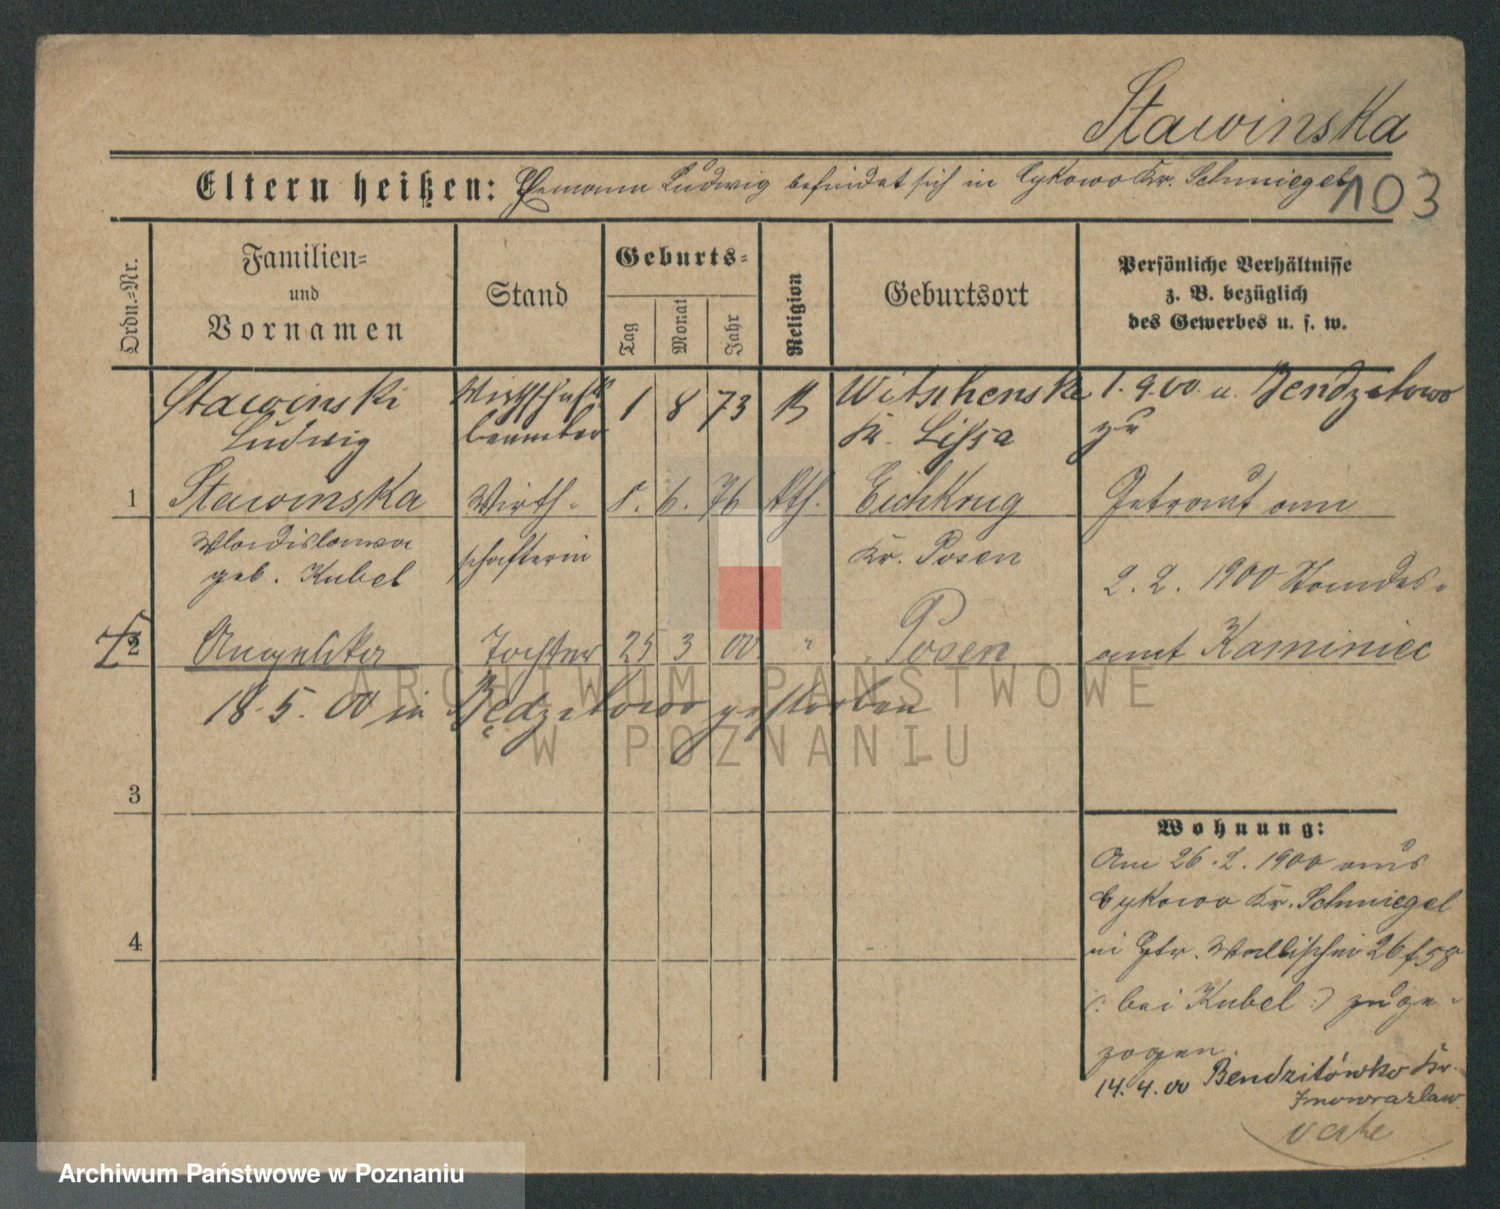 Stawinska
Eltern heißen: Ehemann Ludwig befindet sich in Cykowo Kr. Schmiegel
103
Ordn.-Nr.
Familien-
und
Vornamen
Stand
Geburts-
Tag
Monat
Jahr
Religion
Geburtsort
Persönliche Verhältnisse
z. B. bezüglich
des Gewerbes u. s. w.
Stawinski Wirthschafts 1 8 73 Witschenske 1. 9. 00 u. Bendzitowo
Ludwig beamter Kr. Lissa zu
1 Stawinska Wirth- 8. 6. 76 kth. Eichkrug Getraut am
Wladislawa schafterin Kr. Posen
geb. Kubel 2. 2. 1900 Standes-
2 Angelika Tochter 25 3 00 " Posen amt Kaminiec
18. 5. 00 in Będzitowo gestorben
3
Wohnung:
Am 26. 2. 1900 aus
Cykowo Kr. Schmiegel
4
in Wallischei 26/58
(: bei Kubel :) zuge-
zogen.
14. 4. 00 Bendzitówko Kr.
Inowrazlaw
ARCHIWUM PAŃSTWOWE
W POZNANIU
Archiwum Państwowe w Poznaniu